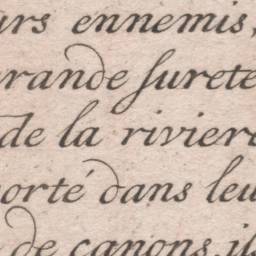 urs ennemis,
grande surete
de la riviere
orté dans leu
de canons, il